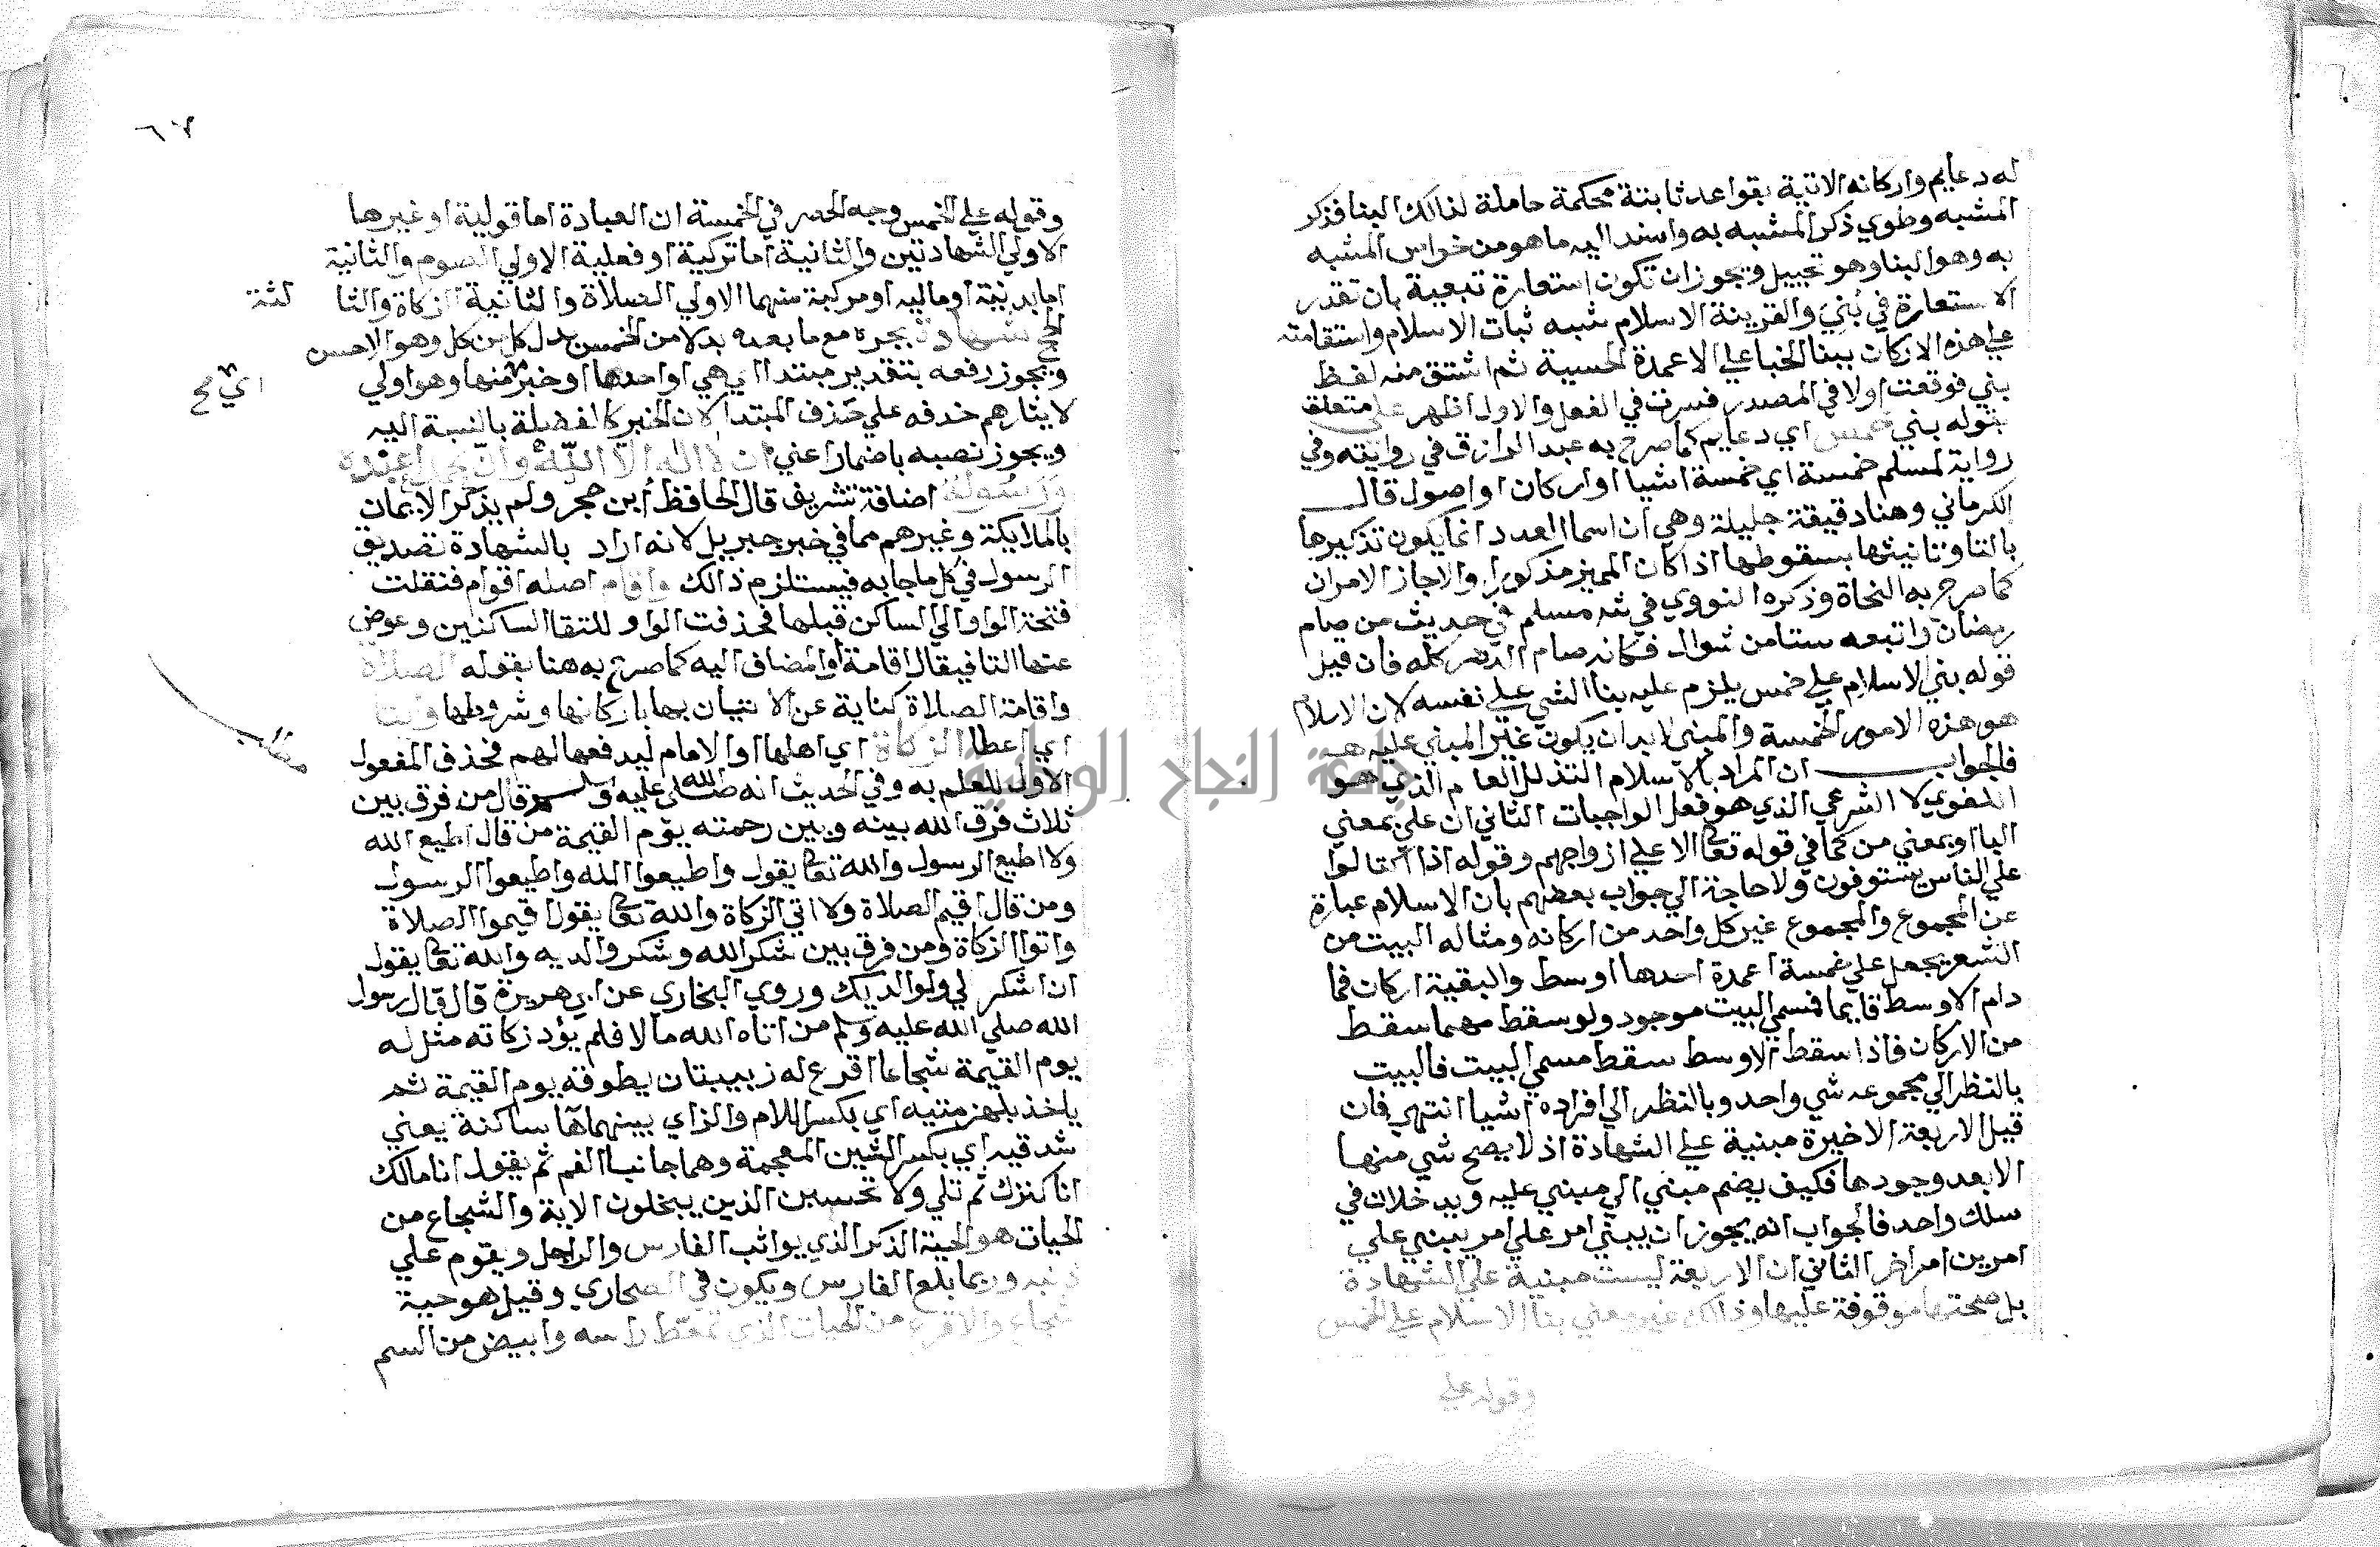 له دعايم واركانه الاتية بقواعد ثابتة محكمة حاملة لذالك البنا فذكر
المشبه وطوي ذكر المشبه به واسند اليه ما هو من خواس المشبه
به وهو البنا وهو تخييل ويجوز ان تكون استعارة تبعية بان تقدر
الاستعارة في بُنِيَ والقرينة الاسلام شبه ثبات الاسلام واستقامته
علي هذه الاركان ببنا الخبا علي الاعمدة الحسية ثم اشتق منه لفظ
بني فوقعت اولا في المصدر فسرت في الفعل والاول اظهر علي متعلق
بقوله بني خمس اي دعايم كما صرح به عبد الرازق في روايته وفي
رواية لمسلم خمسة اي خمسة اشيا او اركان او اصول قال
الكرماني وهنا دقيقة جليلة وهي ان اسما العدد انما يكون تذكيرها
بالتا وتانيثها بسقوطها اذا كان المميز مذكورا والا جاز الامران
كما صرح به النحاة وذكره النووي في شه مسلم في حديث من صام
رمضان واتبعه ستا من شوال فكانه صام الدهر كله فان قيل
قوله بني الاسلام علي خمس يلزم عليه بنا الشي علي نفسه لان الاسلام
هو هذه الامور الخمسة والمبني لابد ان يكون غير المبني عليه
فالجواب ان المراد بالاسلام التذلل العام الذي هو
اللغوي لا الشرعي الذي هو فعل الواجبات الثاني ان علي بمعني
البا او بمعني من كما في قوله تعا الا علي ازواجهم وقوله اذا اكتالوا
علي الناس يستوفون ولا حاجة الي جواب بعضهم بان الاسلام عبارة
عن المجموع والمجموع غير كل واحد من اركانه ومثاله البيت من
الشعر يجعل علي خمسة اعمدة احدها اوسط والبقية اركان فما
دام الاوسط قايما فمسمي البيت موجود ولو سقط مهما سقط
من الاركان فاذا سقط الاوسط سقط مسمي البيت فالبيت
بالنظر الي مجموعه شي واحد وبالنظر الي افراده اشيا انتهي فان
قيل الاربعة الاخيرة مبنية علي الشهادة اذ لا يصح شي منها
الا بعد وجودها فكيف يضم مبني الي مبني عليه ويدخلان في
سلك واحد فالجواب انه يجوز ان يبتني امر علي امر يبتني علي
امرين امر اخر الثاني ان الاربعة ليست مبنية علي الشهادة
بل صحتها موقوفة عليها وذالك غير معني بنا الاسلام علي الخمس
وقوله علي
٦٧
وقوله علي الخمس وجه الحصر في الخمسة ان العبادة اما قولية او غيرها
الاولي الشهادتين والثانية اما تركية او فعلية الاولي الصوم والثانية
اما بدنية او مالية او مركبة منهما الاولي الصلاة والثانية الزكاة والثا لثة
الحج شهادة بجره مع ما بعده بدلا من الخمس بدل كل من كل وهو الاحسن
ويجوز رفعه بتقدير مبتدا اي هي او احدها او خبر منها وهو اولي
اي صح
لايثارهم حذفه علي حذف المبتدا لان الخبر كالفضلة بالنسبة اليه
ويجوز نصبه باضمار اعني ان لا اله الا الله وان محمدا عبده
ورسوله اضافة تشريف قال الحافظ ابن حجر ولم يذكر الايمان
بالملايكة وغيرهم مما في خبر جبريل لانه اراد بالشهادة تصديق
الرسول في كل ما جا به فيستلزم ذالك واقام اصله اقوام فنقلت
فتحة الواو الي الساكن قبلها فحذفت الواو للتقا الساكنين وعوض
عنها التا فيقال اقامة او المضاف اليه كما صرح به هنا بقوله الصلاة
واقامة الصلاة كناية عن الاتيان بها باركانها وشروطها وايتا
اي اعطا الزكاة اي اهلها او الامام ليدفعها لهم فحذف المفعول
الاول للعلم به وفي الحديث انه صلي الله عليه وسلم قال من فرق بين
ثلاث فرق الله بينه وبين رحمته يوم القيمة من قال اطيع الله
ولا اطيع الرسول والله تعا يقول واطيعوا الله واطيعوا الرسول
ومن قال اقيم الصلاة ولا اتي الزكاة والله تعا يقول اقيموا الصلاة
واتوا الزكاة ومن فرق بين شكر الله وشكر والديه والله تعا يقول
ان اشكر لي ولوالديك وروي البخاري عن ابي هريرة قال قال رسول
الله صلي الله عليه وسلم من اتاه الله مالا فلم يؤد زكاته مثل له
يوم القيمة شجاعا اقرع له زبيبتان يطوقه يوم القيمة ثم
ياخذ بلهزمتيه اي بكسر اللام والزاي بينهما ها ساكنة يعني
شدقيه اي بكسر الشين المعجمة وهما جانبا الفم ثم يقول انا مالك
انا كنزك ثم تلي ولا تحسبن الذين يبخلون الاية والشجاع من
الحيات هو الحية الذكر الذي يواثب الفارس والراجل ويقوم علي
ذنبه وربما بلغ الفارس ويكون في الصحاري وقيل هو حية
شجاع والاقرع من الحيات الذي تمعط راسه وابيض من السم
جامعة النجاح الوطنية